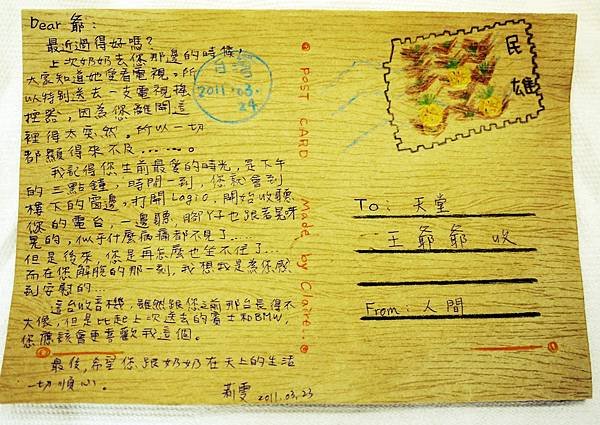 Dear 爺:
最近過得好嗎?
上次奶奶去您那邊的時候,
大家知道她愛看電視。所
以特別送去一支電視搖
控器,因為您離開這
裡得太突然。所以一切
都顯得來不及……。
我記得您生前最愛的時光,是下午
的三點鐘,時間一到,您就會到
樓下的窗邊,打開Lagio,開始收聽
您的電台,一邊聽,腳丫子也跟著晃呀
晃的,似乎什麼病痛都不見了……
但是後來,您是再怎麼也坐不住了…
而在您解脫的那一刻,我想我是為您感
到安慰的…
這台收音機,雖然跟您之前那台長得不
大像,但是比起上次送去的賓士和BMW,
您應該會更喜歡我這個。
最後,希望您跟奶奶在天上的生活
一切順心。
雯 2011.03.23
台灣
2011.03.
24
POST CARD Made by Claire.
民雄
To: 天堂
王爺爺 收
From: 人間